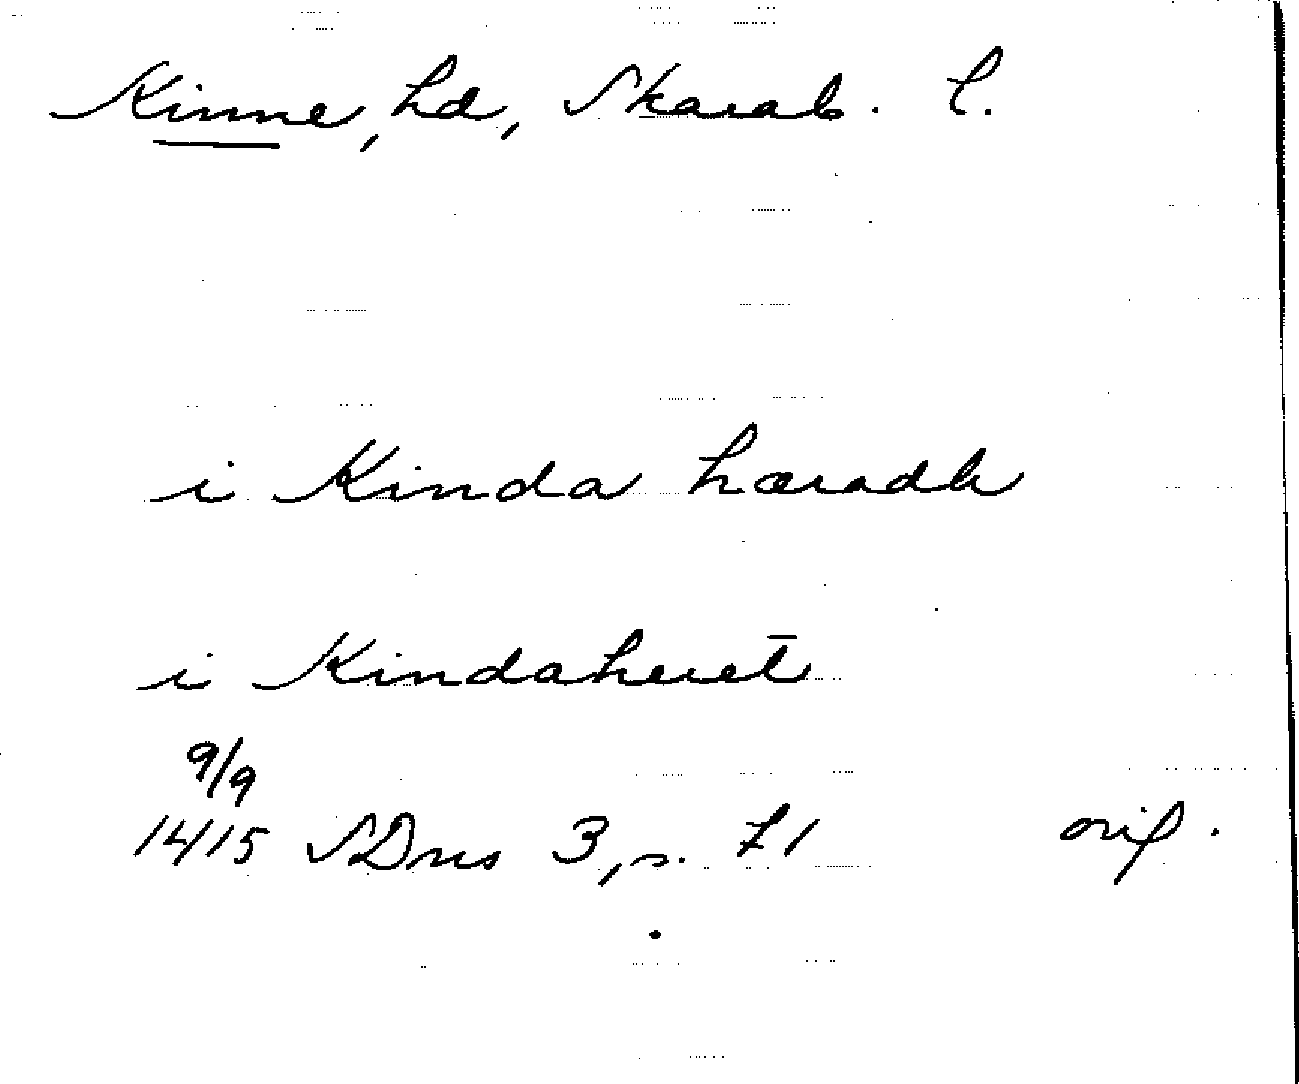 Kinne, hd, Skarab. l.
i Kinda hæradh
i Kindaheret̄
9/9
1415 SDns 3, s. 71 orig.